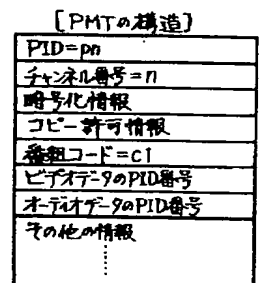 [PMTの構造]
PID=pn
チャンネル番号=n
暗号化情報
コピー許可情報
番組コード=c1
ビデオデータのPID番号
オーディオデータのPID番号
その他の情報